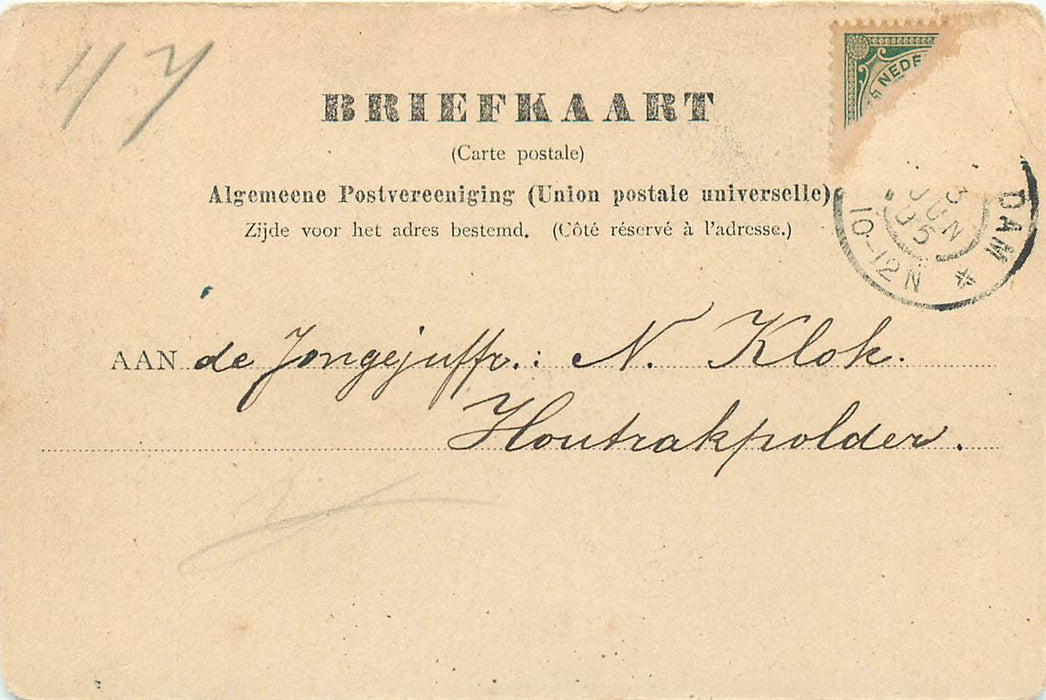 47
BRIEFKAART
(Carte postale)
Algemeene Postvereeniging (Union postale universelle)
Zijde voor het adres bestemd. (Côté réservé à l'adresse.)
NEDE
DAM
3
JUN
05
10-12N
AAN de Jongejuffr.: N. Klok.
Houtrakpolder.